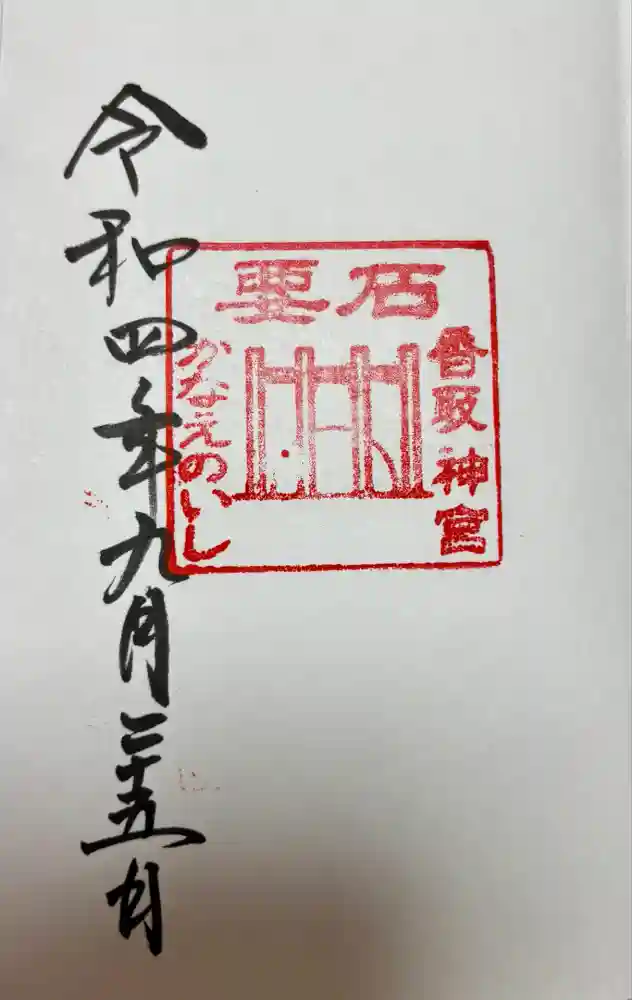 要石
香取神宮
かなめのいし
令和四年九月二十五日